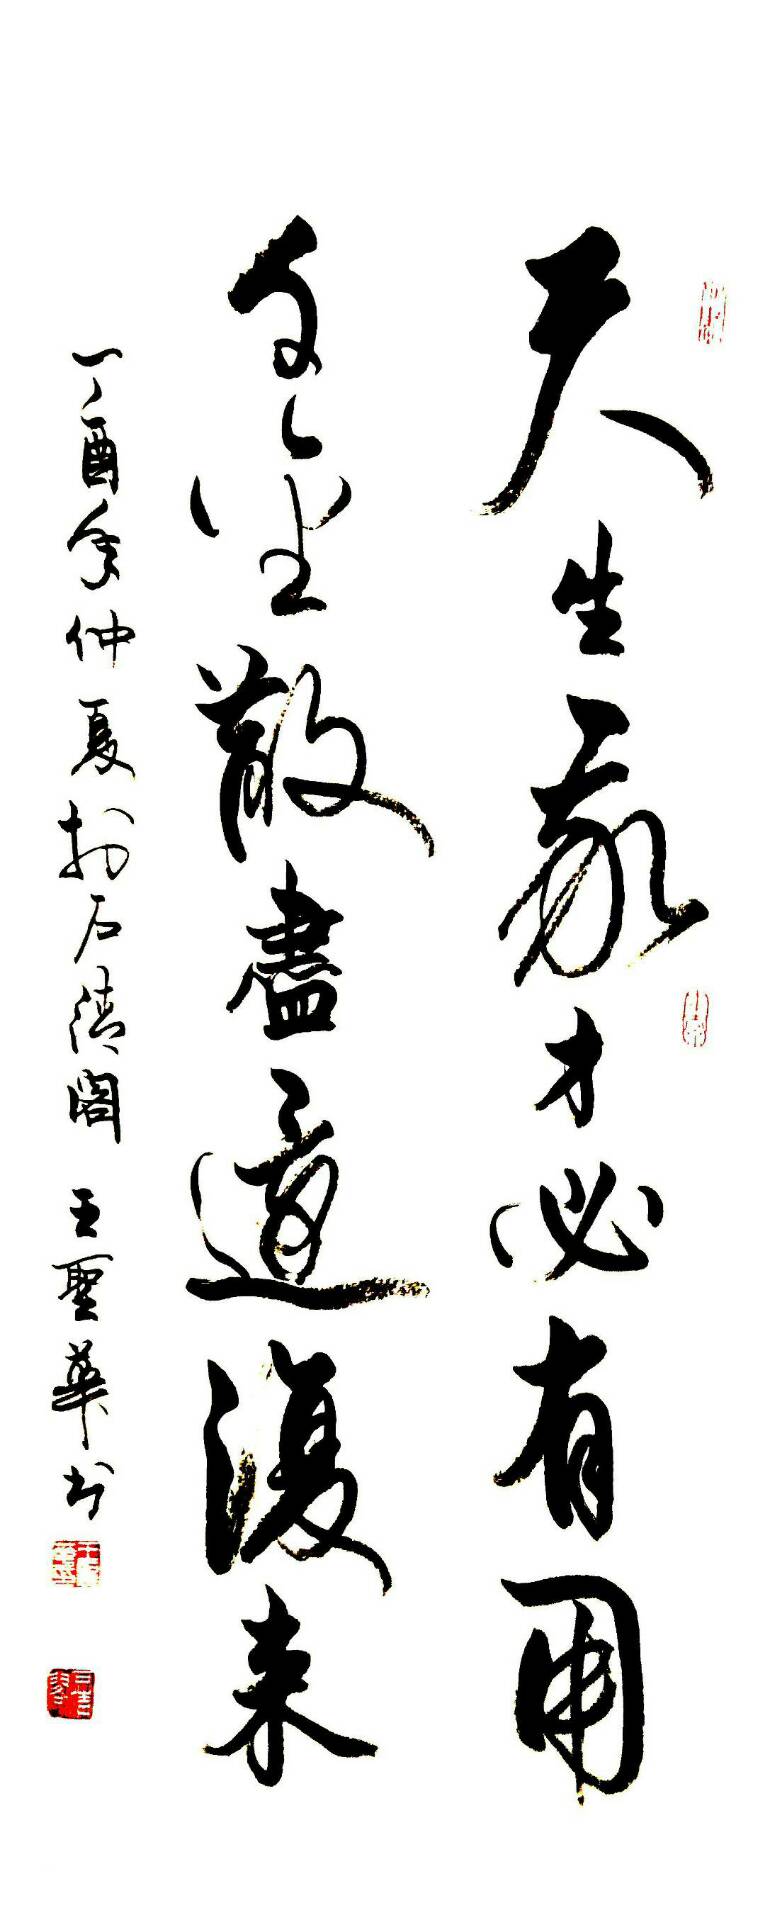 天生我才必有用
千金散盡還復来
丁酉年仲夏於石清閣 王聖華书